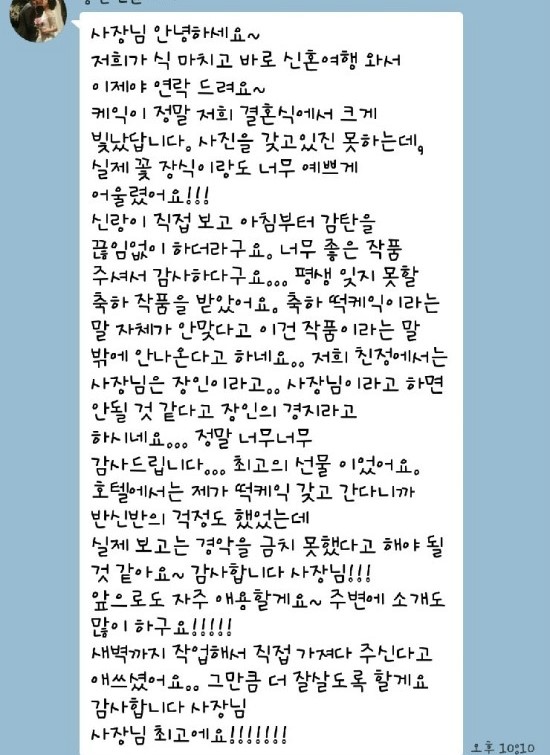 사장님 안녕하세요~
저희가 식 마치고 바로 신혼여행 와서
이제야 연락 드려요~
케익이 정말 저희 결혼식에서 크게
빛났답니다. 사진을 갖고있진 못하는데,
실제 꽃 장식이랑도 너무 예쁘게
어울렸어요!!!
신랑이 직접 보고 아침부터 감탄을
끊임없이 하더라구요. 너무 좋은 작품
주셔서 감사하다구요... 평생 잊지 못할
축하 작품을 받았어요. 축하 떡케익이라는
말 자체가 안맞다고 이건 작품이라는 말
밖에 안나온다고 하네요.. 저희 친정에서는
사장님은 장인이라고.. 사장님이라고 하면
안될 것 같다고 장인의 경지라고
하시네요... 정말 너무너무
감사드립니다... 최고의 선물 이었어요.
호텔에서는 제가 떡케익 갖고 간다니까
반신반의 걱정도 했었는데
실제 보고는 경악을 금치 못했다고 해야 될
것 같아요~ 감사합니다 사장님!!!
앞으로도 자주 애용할게요~ 주변에 소개도
많이 하구요!!!!!
새벽까지 작업해서 직접 가져다 주신다고
애쓰셨어요.. 그만큼 더 잘살도록 할게요
감사합니다 사장님
사장님 최고에요!!!!!!!
오후 10:10